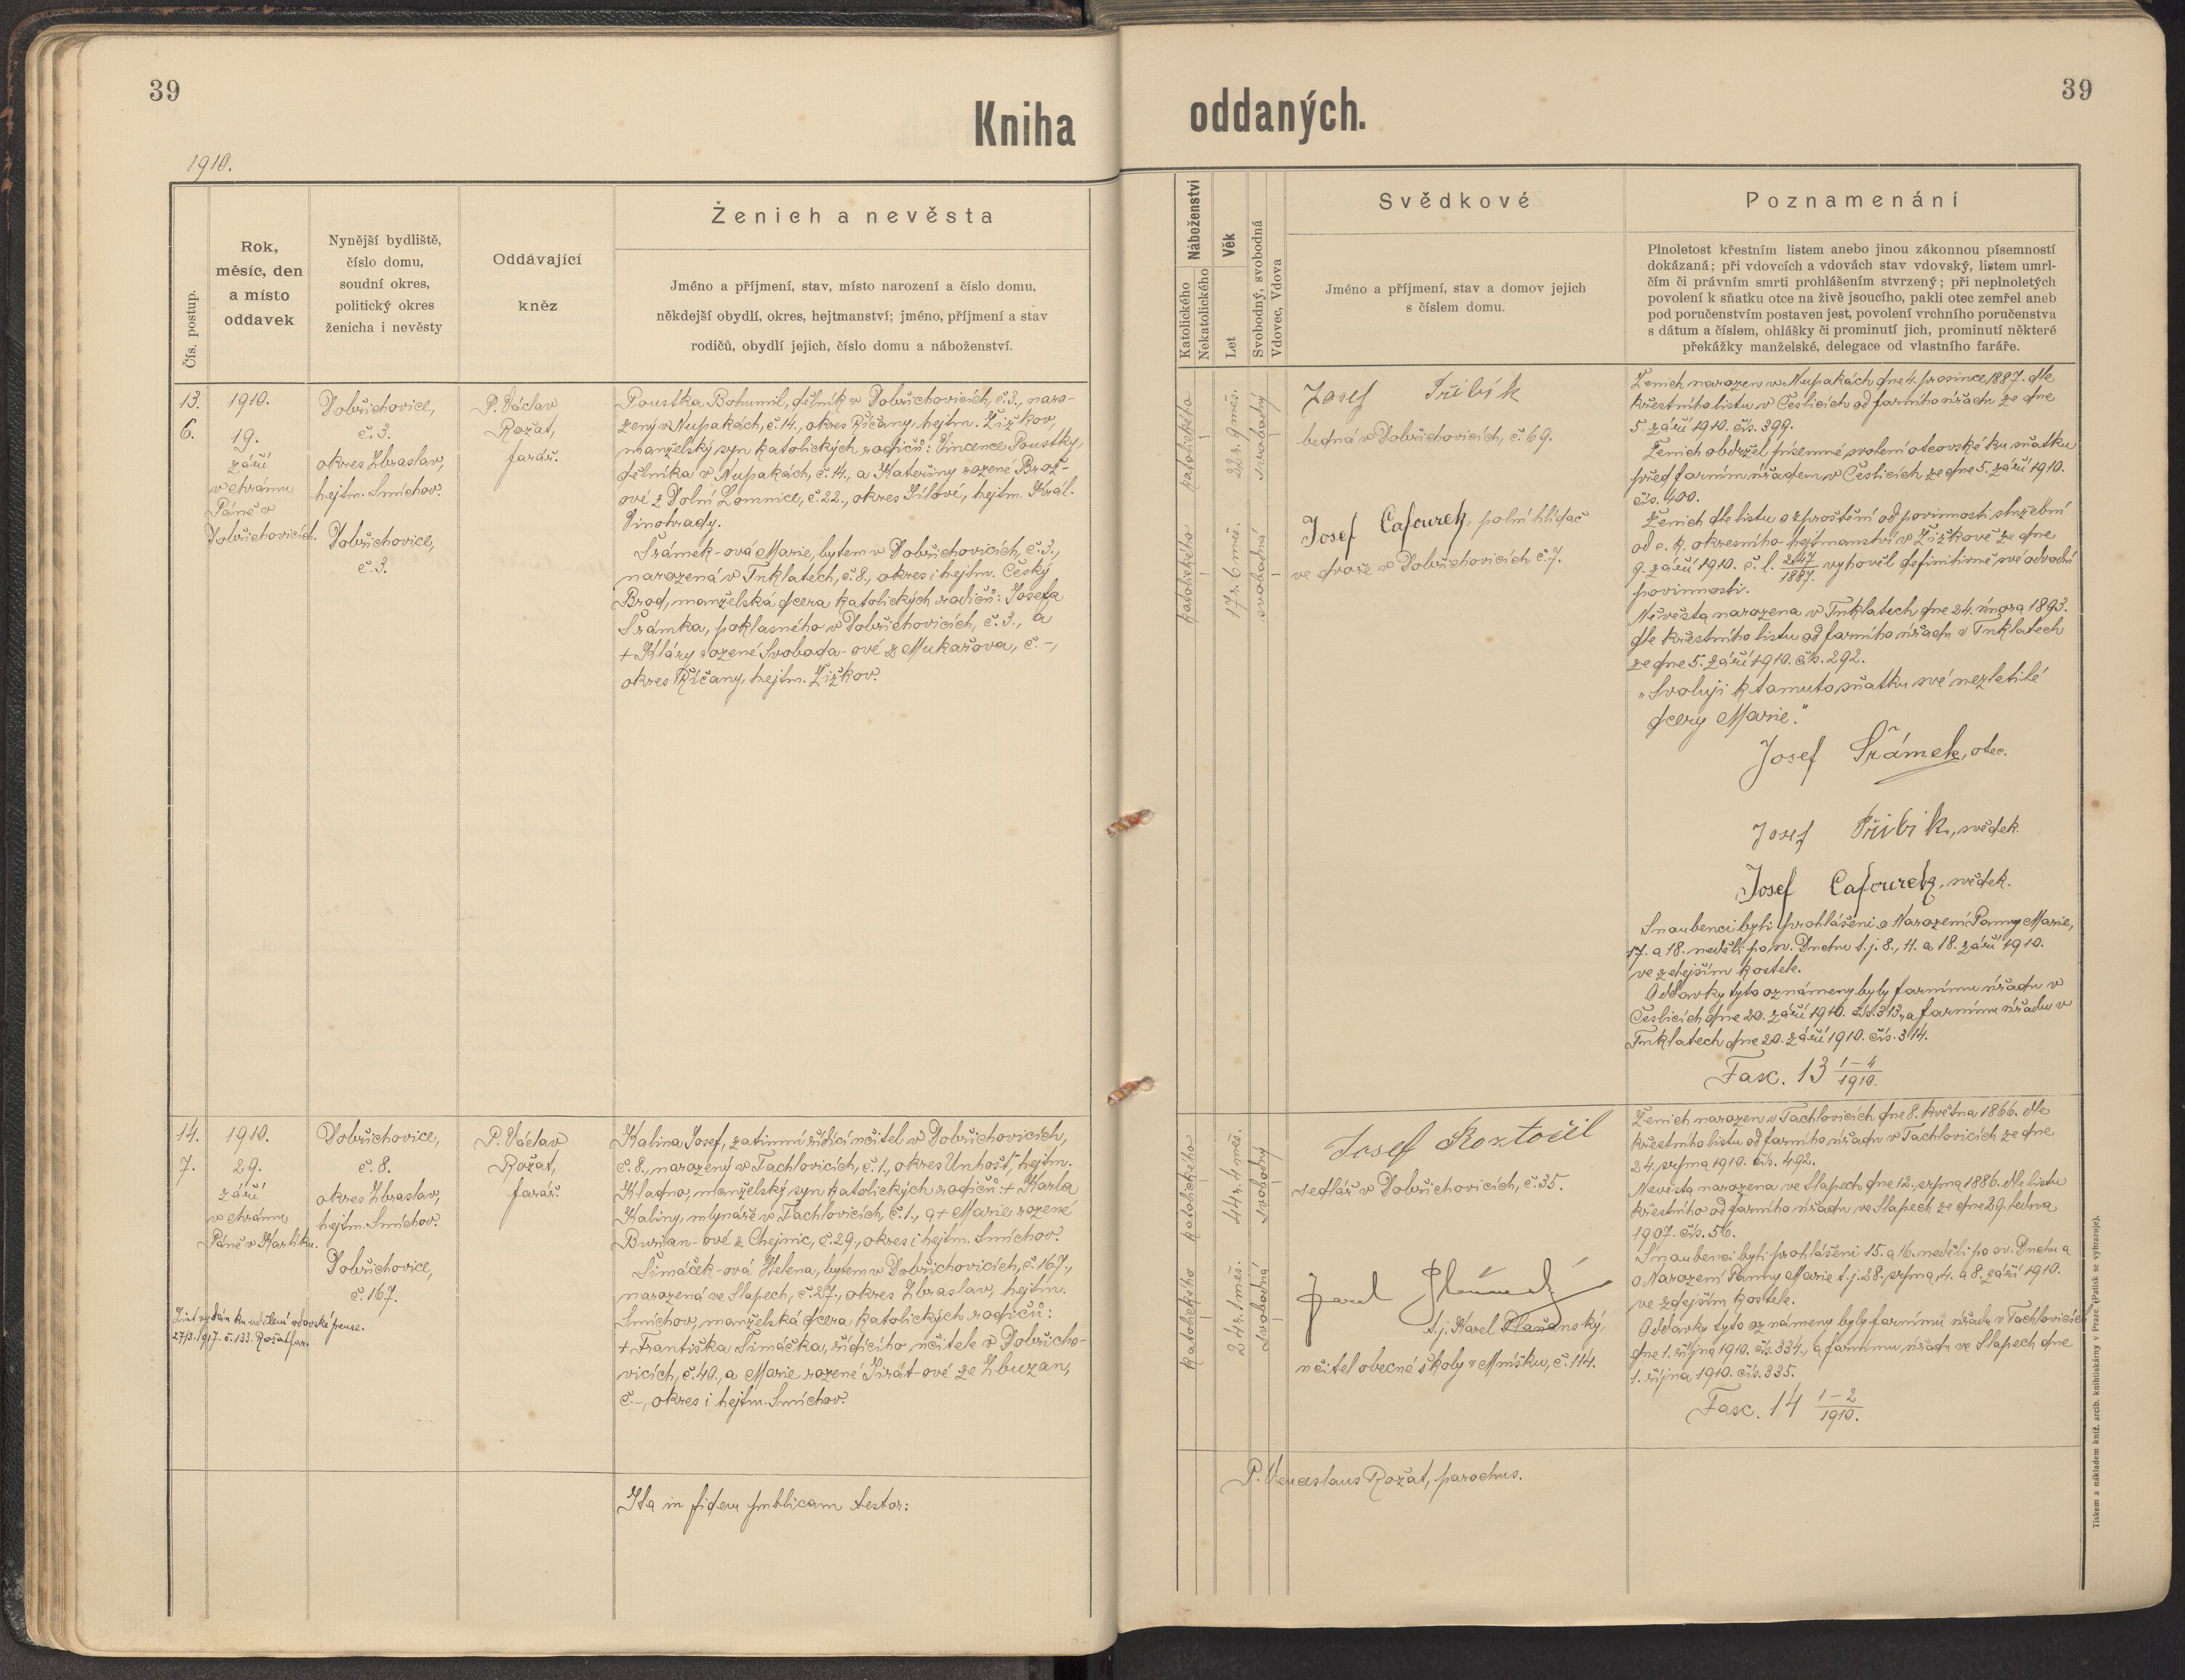 39
Kniha
1910.
Čís. postup.
Rok,
měsíc, den
a místo
oddavek
Nynější bydliště,
číslo domu,
soudní okres,
politický okres
ženicha i nevěsty
Oddávající
kněz
Ženich a nevěsta
Jméno a příjmení, stav, místo narození a číslo domu,
někdejší obydlí, okres, hejtmanství; jméno, příjmení a stav
rodičů, obydlí jejich, číslo domu a náboženství.
13.
6.
1910.
19.
září
v chrámu
Páně v
Dobřichovicích.
Dobřichovice,
č. 3.
okres Zbraslav,
hejtm. Smíchov.
Dobřichovice,
č. 3.
P. Václav
Rožat,
farář.
Poustka Bohumil, dělník v Dobřichovicích, č. 3., naro-
zený v Nupakách, č. 14., okres Říčany, hejtm. Žižkov,
manželský syn katolických rodičů: Vincence Poustky,
dělníka v Nupakách, č. 14., a Kateřiny rozené Brož-
ové z Dolní Lomnice, č. 22., okres Jílové, hejtm. Král.
Vinohrady.
Šrámek-ová Marie, bytem v Dobřichovicích, č. 3.,
narozená v Tuklatech, č. 8., okres i hejtm. Český
Brod, manželská dcera katolických rodičů: Josefa
Šrámka, poklasného v Dobřichovicích, č. 3., a
+ Kláry rozené Svoboda-ové z Mukařova, č. -,
okres Říčany, hejtm. Žižkov.
14.
7.
1910.
29.
září
v chrámu
Páně v Karlíku.
List vydán ku udělení vdovské pense.
27/3. 1917. č. 133. Rožat far.
Dobřichovice,
č. 8.
okres Zbraslav,
hejtm. Smíchov.
Dobřichovice,
č. 167.
P. Václav
Rožat,
farář.
Kalina Josef, zatímní řídící učitel v Dobřichovicích,
č. 8., narozený v Tachlovicích, č. 1., okres Unhošť, hejtm.
Kladno, manželský syn katolických rodičů: + Karla
Kaliny, mlynáře v Tachlovicích, č. 1., a + Marie rozené
Burian-ové z Chejnic, č. 29., okres i hejtm. Smíchov.
Šimáček-ová Helena, bytem v Dobřichovicích, č. 167.,
narozená ve Slapech, č. 27., okres Zbraslav, hejtm.
Smíchov, manželská dcera katolických rodičů:
+ Františka Šimáčka, řídícího učitele v Dobřicho-
vicích, č. 40., a Marie rozené Jirát-ové ze Zbuzan,
č. -, okres i hejtm. Smíchov.
Ita in fidem publicam testor:
39
oddaných.
Náboženství
Katolického
Nekatolického
Věk
Let
Svobodný, svobodná
Vdovec, Vdova
Svědkové
Jméno a příjmení, stav a domov jejich
s číslem domu.
Poznamenání
Plnoletost křestním listem anebo jinou zákonnou písemností
dokázaná; při vdovcích a vdovách stav vdovský, listem umrl-
čím či právním smrti prohlášením stvrzený; při neplnoletých
povolení k sňatku otce na živě jsoucího, pakli otec zemřel aneb
pod poručenstvím postaven jest, povolení vrchního poručenstva
s dátum a číslem, ohlášky či prominutí jich, prominutí některé
překážky manželské, delegace od vlastního faráře.
katolického
22 r. 9 měs.
svobodný
katolického
17 r. 6 měs.
svobodná
Josef Přibík
bednář v Dobřichovicích, č. 69.
Josef Cafourek, polní hlídač
ve dvoře v Dobřichovicích č. 7.
Ženich narozen v Nupakách dne 4. prosince 1887. dle
křestního listu v Česlicích od farního úřadu ze dne
5. září 1910. čís. 399.
Ženich obdržel písemné svolení otcovské ku sňatku
před farním úřadem v Česlicích ze dne 5. září 1910.
čís. 400.
Ženich dle listu o zproštění od povinnosti služební
od c. k. okresního hejtmanství v Žižkově ze dne
9. září 1910. č. l. 247/1887. vyhověl definitivně své odvodní
povinnosti.
Nevěsta narozena v Tuklatech dne 24. února 1893.
dle křestního listu od farního úřadu v Tuklatech
ze dne 5. září 1910. čís. 292.
„Svoluji k tomuto sňatku své nezletilé
dcery Marie."
Josef Šrámek, otec.
Josef Přibík, svědek.
Josef Cafourek, svědek.
Snoubenci byli prohlášeni o Narození Panny Marie,
17. a 18. neděli po sv. Duchu t. j. 8., 11. a 18. září 1910.
ve zdejším kostele.
Oddavky tyto oznámeny byly farnímu úřadu v
Česlicích dne 20. září 1910. čís. 313., a farnímu úřadu v
Tuklatech dne 20. září 1910. čís. 314.
Fasc. 13 1-4/1910.
katolického
44 r. 4 měs.
svobodný
katolického
24 r. 1 měs.
svobodná
Josef Roztočil
sedlář v Dobřichovicích, č. 35.
t. j. Karel Plaňanský,
učitel obecné školy v Mníšku, č. 114.
Ženich narozen v Tachlovicích dne 8. května 1866. dle
křestního listu od farního úřadu v Tachlovicích ze dne
24. srpna 1910. čís. 492.
Nevěsta narozena ve Slapech dne 12. srpna 1886. dle listu
křestního od farního úřadu ve Slapech ze dne 29. ledna
1907. čís. 56.
Snoubenci byli prohlášeni 15. a 16. neděli po sv. Duchu a
o Narození Panny Marie t. j. 28. srpna, 4. a 8. září 1910.
ve zdejším kostele.
Oddavky tyto oznámeny byly farnímu úřadu v Tachlovicích
dne 1. října 1910. čís. 334., a farnímu úřadu ve Slapech dne
1. října 1910. čís. 335.
Fasc. 14 1-2/1910.
P. Venceslaus Rožat, parochus.
Tiskem a nákladem kníž. arcib. knihtiskárny v Praze. (Patisk se vyhrazuje).